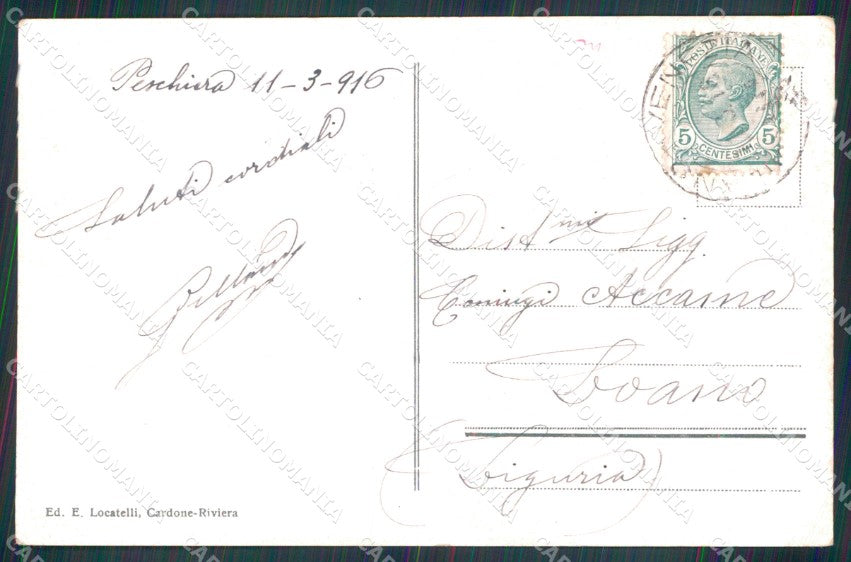 Peschiera 11-3-916
Saluti cordiali
POSTE ITALIANE
5 5
CENTESIMI
Dist.mi Sigg.
Coniugi Accame
Loano
(Liguria)
Ed. E. Locatelli, Cardone-Riviera
CARTOLINOMANIA